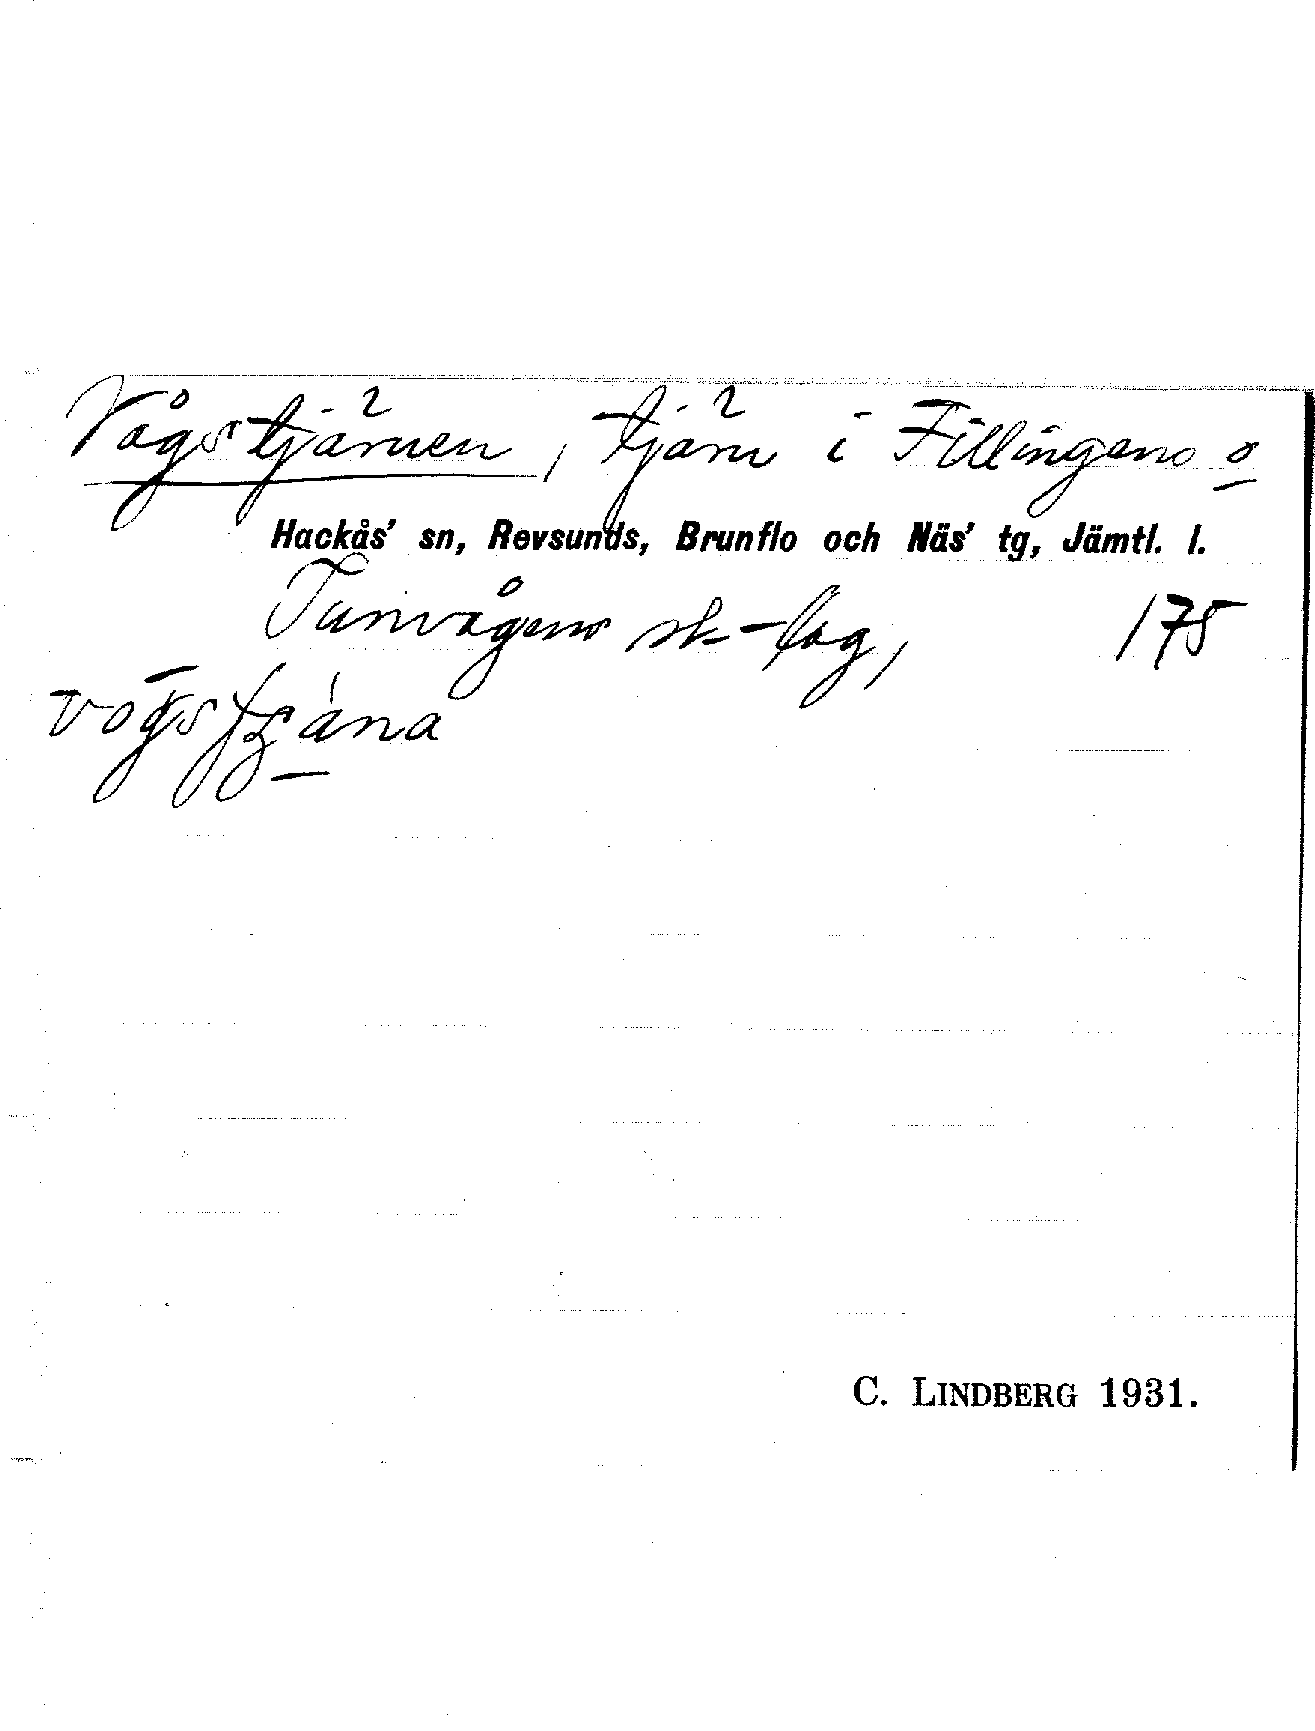 Vågstjärnen, tjärn i Fillingens o
Hackås' sn, Revsunds, Brunflo och Näs' tg, Jämtl. l.
Tunvågens sk-lag, 175
C. LINDBERG 1931.